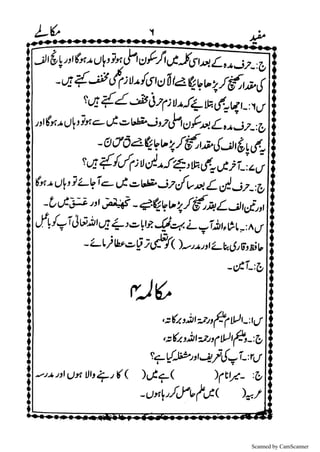 مفید ۶ مکالمے
ج:۔ حرف مدہ کے بعد اسی کلمہ میں اگر سکون اصلی ہو تو وہاں مد ہوگا اور پانچ الف
کی مقدار کھینچ کر پڑھا جائیگا جیسے آلْآنَ اسی کو مد لازم کلمی مخفف کہتے ہیں۔
س۶:۔ اچھا یہ بھی بتلائیے کہ مد لازم حرفی مخفف کسے کہتے ہیں؟
ج:۔ حرف مدہ کے بعد سکون اصلی حروف مقطعات میں سے ہو تو وہاں مد ہوگا اور
یہ بھی پانچ الف کی مقدار کھینچ کر پڑھا جائیگا جیسے قٓ صٓ نٓ۔
س۷:۔ آخر میں یہ بھی بتلا دیجئے کہ مد لین لازم کس کو کہتے ہیں؟
ج:۔ حرف لین کے بعد ساکن حرف مقطعات میں سے آ جائے تو وہاں مد ہوگا
اور تین الف کے بقدر کھینچ کر پڑھا جائیگا جیسے۔ كهيعص اور عسق میں ع۔
س۸:۔ ماشاء اللہ آپ نے بہت ٹھیک ٹھیک جوابات دئے ہیں اللہ تعالیٰ آپ کو با عمل
حافظ و قاری بنائے اور مدرسہ ( ) کو تعلیمی ترقیات عطا فرمائے۔
ج:۔ آمین۔
مکالمہ ۴
س۱:۔ السلام علیکم ورحمۃ اللہ وبرکاتہ،
ج:۔ وعلیکم السلام ورحمۃ اللہ وبرکاتہ،
س۲:۔ آپ کی تعریف اور مشغلہ کیا ہے؟
ج:۔ میرا نام ( ) ہے میں ( ) کا رہنے والا ہوں اور مدرسہ
عربیہ ( ) میں علم حاصل کر رہا ہوں۔
Scanned by CamScanner